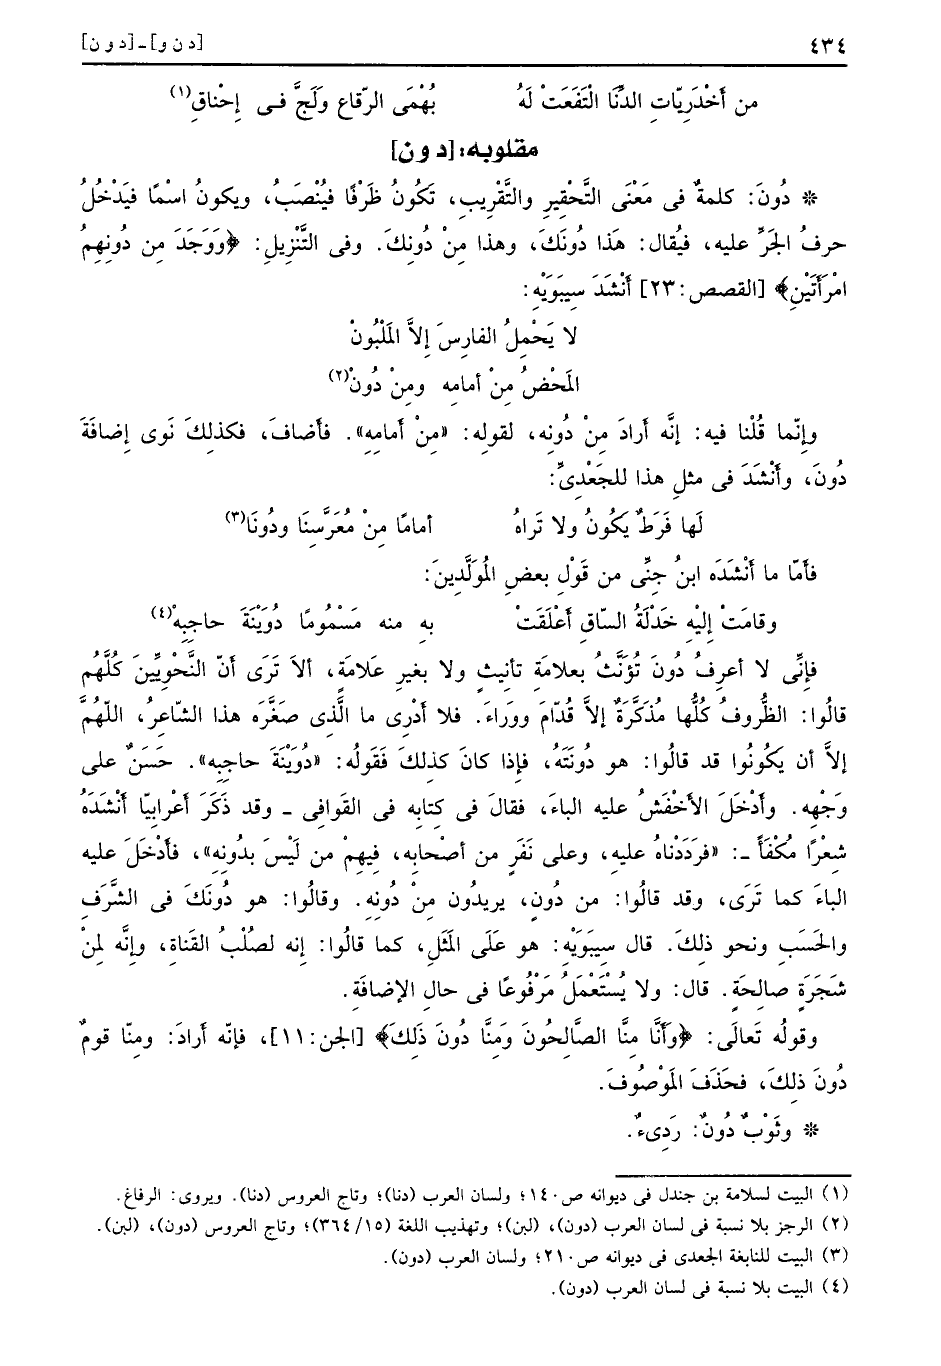 ٤٣٤ [د ن و] ـ [د و ن]
من أَخْدَرِيّاتِ الدَّنَا الْتَفَعَتْ لَهُ بُهْمَى الرّقاع وَلَجَّ فى إحْناقِ(١)
مقلوبه: [د و ن]
* دُونَ: كلمةٌ فى مَعْنَى التَّحْقِيرِ والتَّقْرِيبِ، تَكُونُ ظَرْفًا فيُنْصَبُ، ويكونُ اسْمًا فيَدْخُلُ
حرفُ الجَرِّ عليه، فيُقال: هَذا دُونَكَ، وهذا مِنْ دُونِكَ. وفى التَّنْزِيلِ: ﴿وَوَجَدَ مِن دُونِهِمُ
امْرَأَتَيْنِ﴾ [القصص: ٢٣] أَنْشَدَ سِيبَوَيْهِ:
لا يَحْمِلُ الفارِسَ إلاَّ المَلْبُونْ
المَحْضُ مِنْ أمامِه ومِنْ دُونْ(٢)
وإنّما قُلْنا فيه: إنَّه أرادَ مِنْ دُونِه، لقولِه: «مِنْ أمامِهِ». فأضافَ، فكذلِكَ نَوى إضافَةَ
دُونَ، وأَنْشَدَ فى مثلِ هذا للجَعْدِىِّ:
لَها فَرَطٌ يَكُونُ ولا تَراهُ أمامًا مِنْ مُعَرَّسِنَا ودُونَا(٣)
فأمّا ما أَنْشَدَه ابنُ جِنِّى من قَوْلِ بعضِ المُوَلَّدِينَ:
وقامَتْ إلَيْهِ خَدْلَةُ السّاقِ أَعْلَقَتْ بِه منه مَسْمُومًا دُوَيْنَةَ حاجِبِهْ(٤)
فإنِّى لا أعرِفُ دُونَ تُؤَنَّثُ بعلامَةِ تأنيثٍ ولا بغيرِ عَلامَةٍ، ألاَ تَرَى أنّ النَّحْوِيِّينَ كُلَّهُم
قالُوا: الظُّروفُ كُلُّها مُذَكَّرَةٌ إلاَّ قُدّامَ ووَراءَ. فلا أدْرِى ما الَّذى صَغَّرَه هذا الشّاعرُ، اللّهُمَّ
إلاَّ أن يَكُونُوا قد قالُوا: هو دُونَتَهُ، فإذا كانَ كذلكَ فَقَولُه: «دُوَيْنَةَ حاجِبِه». حَسَنٌ على
وَجْهِه. وأَدْخَلَ الأخْفَشُ عليه الباءَ، فقالَ فى كتابِه فى القَوافِى ـ وقد ذَكَرَ أَعْرابِيّا أَنْشَدَهُ
شِعْرًا مُكْفَأً ـ: «فرَدَدْناهُ عليهِ، وعلى نَفَرٍ من أصْحابِه، فيهِمْ من لَيْسَ بدُونِه»، فأَدْخَلَ عليه
الباءَ كما تَرَى، وقد قالُوا: من دُونِ، يريدُون مِنْ دُونِه. وقالُوا: هو دُونَكَ فى الشَّرَفِ
والحَسَبِ ونحوِ ذلكَ. قال سِيبَوَيْهِ: هو عَلَى المَثَلِ، كما قالُوا: إنه لصُلْبُ القَناةِ، وإنَّه لمِنْ
شَجَرَةٍ صالِحَةٍ. قال: ولا يُسْتَعْمَلُ مَرْفُوعًا فى حالِ الإضافَةِ.
وقولُه تَعالَى: ﴿وَأَنَّا مِنَّا الصَّالِحُونَ وَمِنَّا دُونَ ذَلِكَ﴾ [الجن: ١١]، فإنّه أرادَ: ومِنّا قومٌ
دُونَ ذلِكَ، فحَذَفَ المَوْصُوفَ.
* وثَوْبٌ دُونٌ: رَدِىءٌ.
(١) البيت لسلامة بن جندل فى ديوانه ص١٤٠؛ ولسان العرب (دنا)؛ وتاج العروس (دنا). ويروى: الرفاغ.
(٢) الرجز بلا نسبة فى لسان العرب (دون)، (لبن)؛ وتهذيب اللغة (١٥/ ٣٦٤)؛ وتاج العروس (دون)، (لبن).
(٣) البيت للنابغة الجعدى فى ديوانه ص٢١٠؛ ولسان العرب (دون).
(٤) البيت بلا نسبة فى لسان العرب (دون).